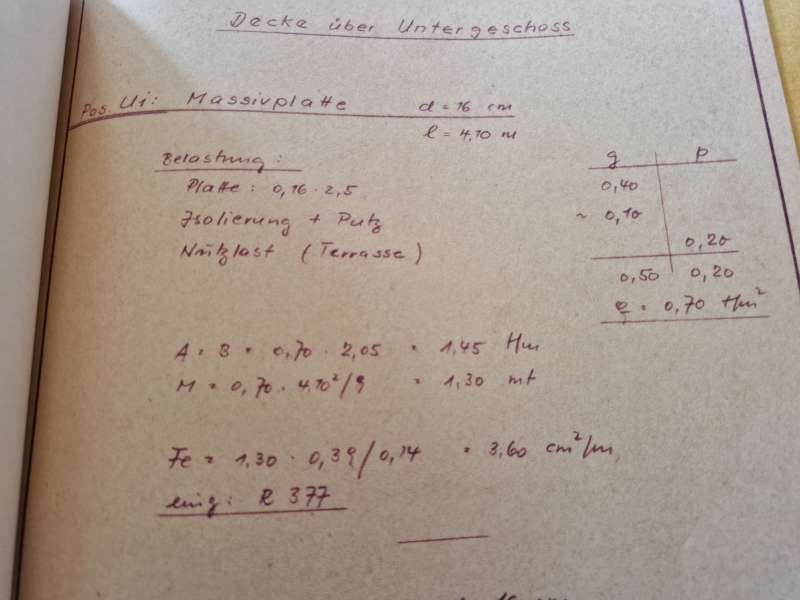 Decke über Untergeschoss
Pos. U1: Massivplatte d = 16 cm
l = 4,10 m
Belastung: g p
Platte: 0,16 · 2,5 0,40
Isolierung + Putz ~ 0,10
Nutzlast (Terrasse) 0,20
0,50 0,20
q = 0,70 t/m²
A = B = 0,70 · 2,05 = 1,45 t/m
M = 0,70 · 4,10²/9 = 1,30 mt
Fe = 1,30 · 0,39/0,14 = 3,60 cm²/m
R 377